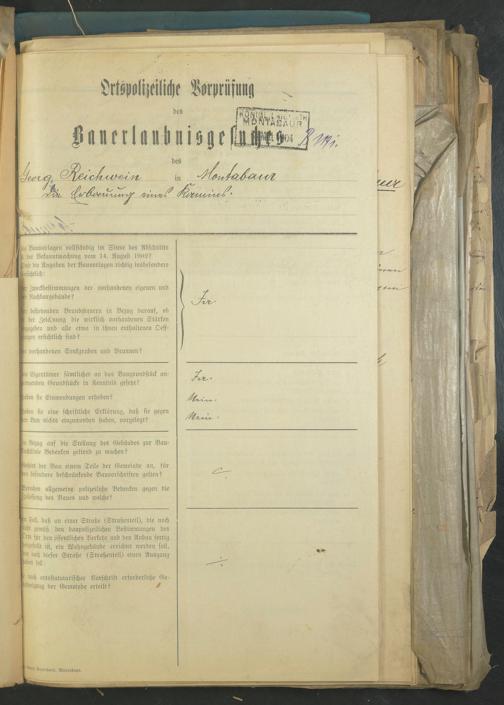 Ortspolizeiliche Vorprüfung
des
Bauerlaubnisgesuches
MONTABAUR
des
Georg Reichwein in Montabaur
die Erbauung eines Kamines.
Bauvorlagen vollständig im Sinne des Abschnitts
der Bekanntmachung vom 14. August
die Angaben der Bauvorlagen richtig insbesondere
Zweckbestimmungen der vorhandenen eigenen und
Nachbargebäude?
bestehenden Brandmauern in Bezug darauf, ob
der Zeichnung die wirklich vorhandenen Stärken
angegeben und alle etwa in ihnen enthaltenen Oeff-
ersichtlich sind?
vorhandenen Senkgruben und Brunnen?
Ja.
Eigentümer sämtlicher an das Baugrundstück an-
Grundstücke in Kenntnis gesetzt?
Ja.
sie Einwendungen erhoben?
Nein.
sie eine schriftliche Erklärung, daß sie gegen
Bau nichts einzuwenden haben, vorgelegt?
Nein.
Bezug auf die Stellung des Gebäudes zur Bau-
Bedenken geltend zu machen?
der Bau einem Teile der Gemeinde an, für
besondere beschränkende Bauvorschriften gelten?
allgemein polizeiliche Bedenken gegen die
des Baues und welche?
Fall, daß an einer Straße (Straßenteil), die noch
gemäß den baupolizeilichen Bestimmungen des
Orts für den öffentlichen Verkehr und den Anbau fertig
ist, ein Wohngebäude errichtet werden soll,
nach dieser Straße (Straßenteil) einen Ausgang
soll
nach ortsstatutarischer Vorschrift erforderliche Ge-
der Gemeinde erteilt?